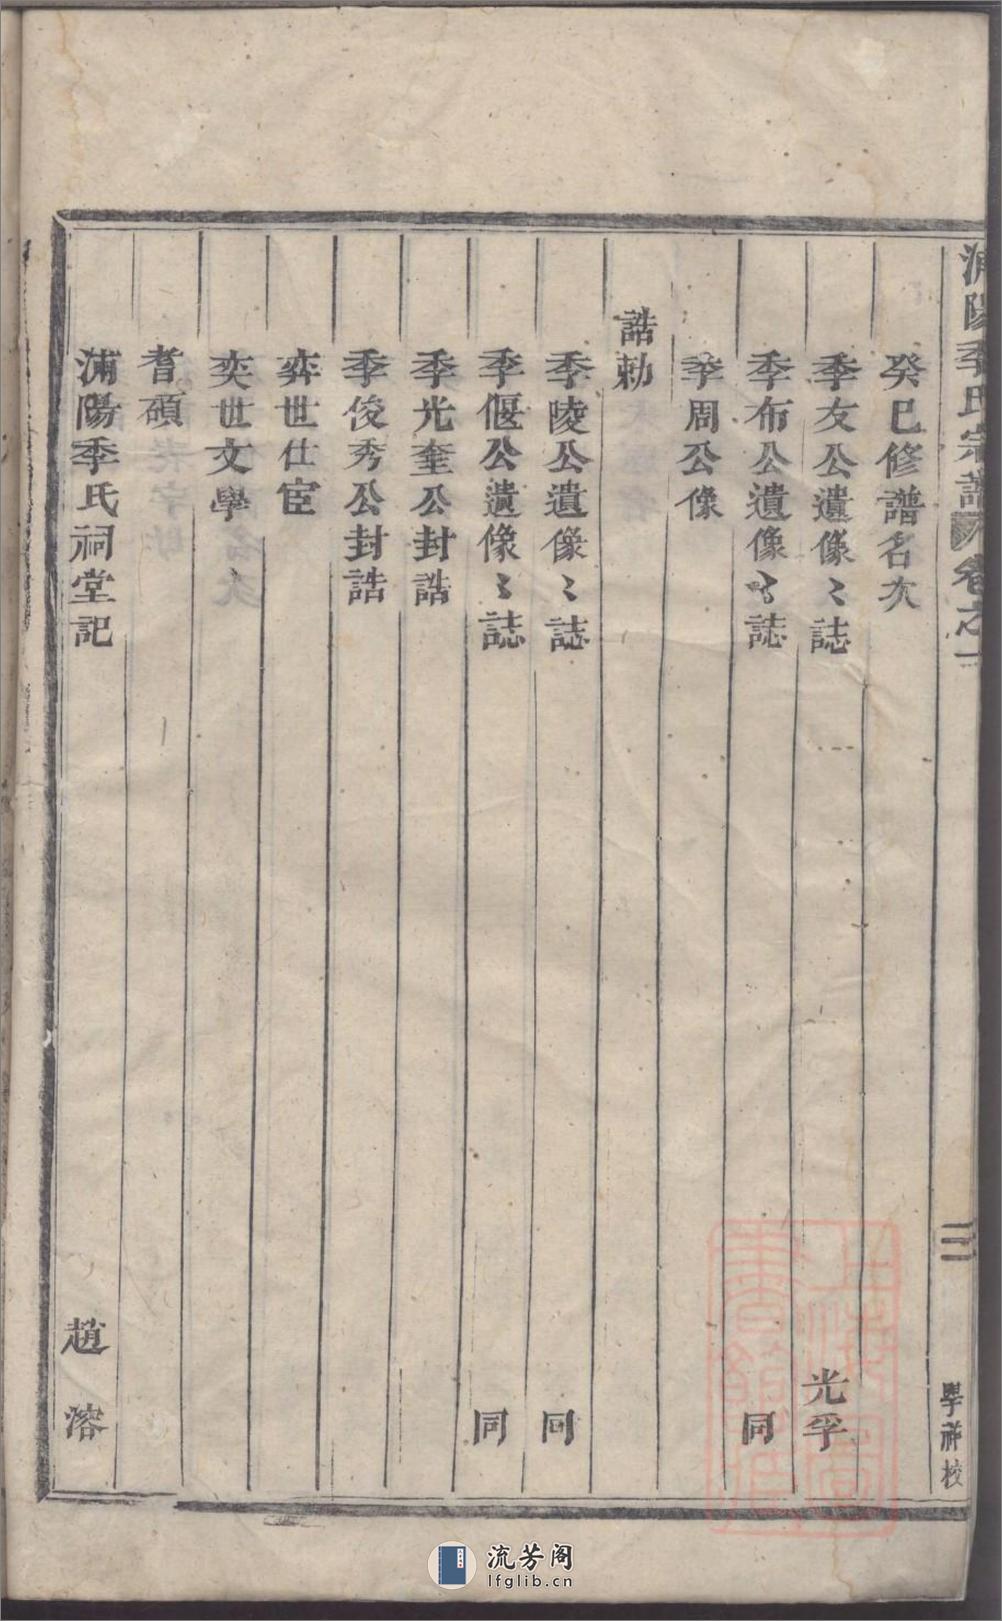 浦陽季氏宗譜 卷之一 三 學祥校
癸巳修譜名次
季友公遺像〻誌 光孚
季布公遺像〻誌 同
季周公像
誥勅
季陵公遺像〻誌 同
季偃公遺像〻誌 同
季光奎公封誥
季俊秀公封誥
弈世仕宦
奕世文學
耆碩
浦陽季氏祠堂記 趙溶
上海圖書館藏
流芳阁
lfglib.cn